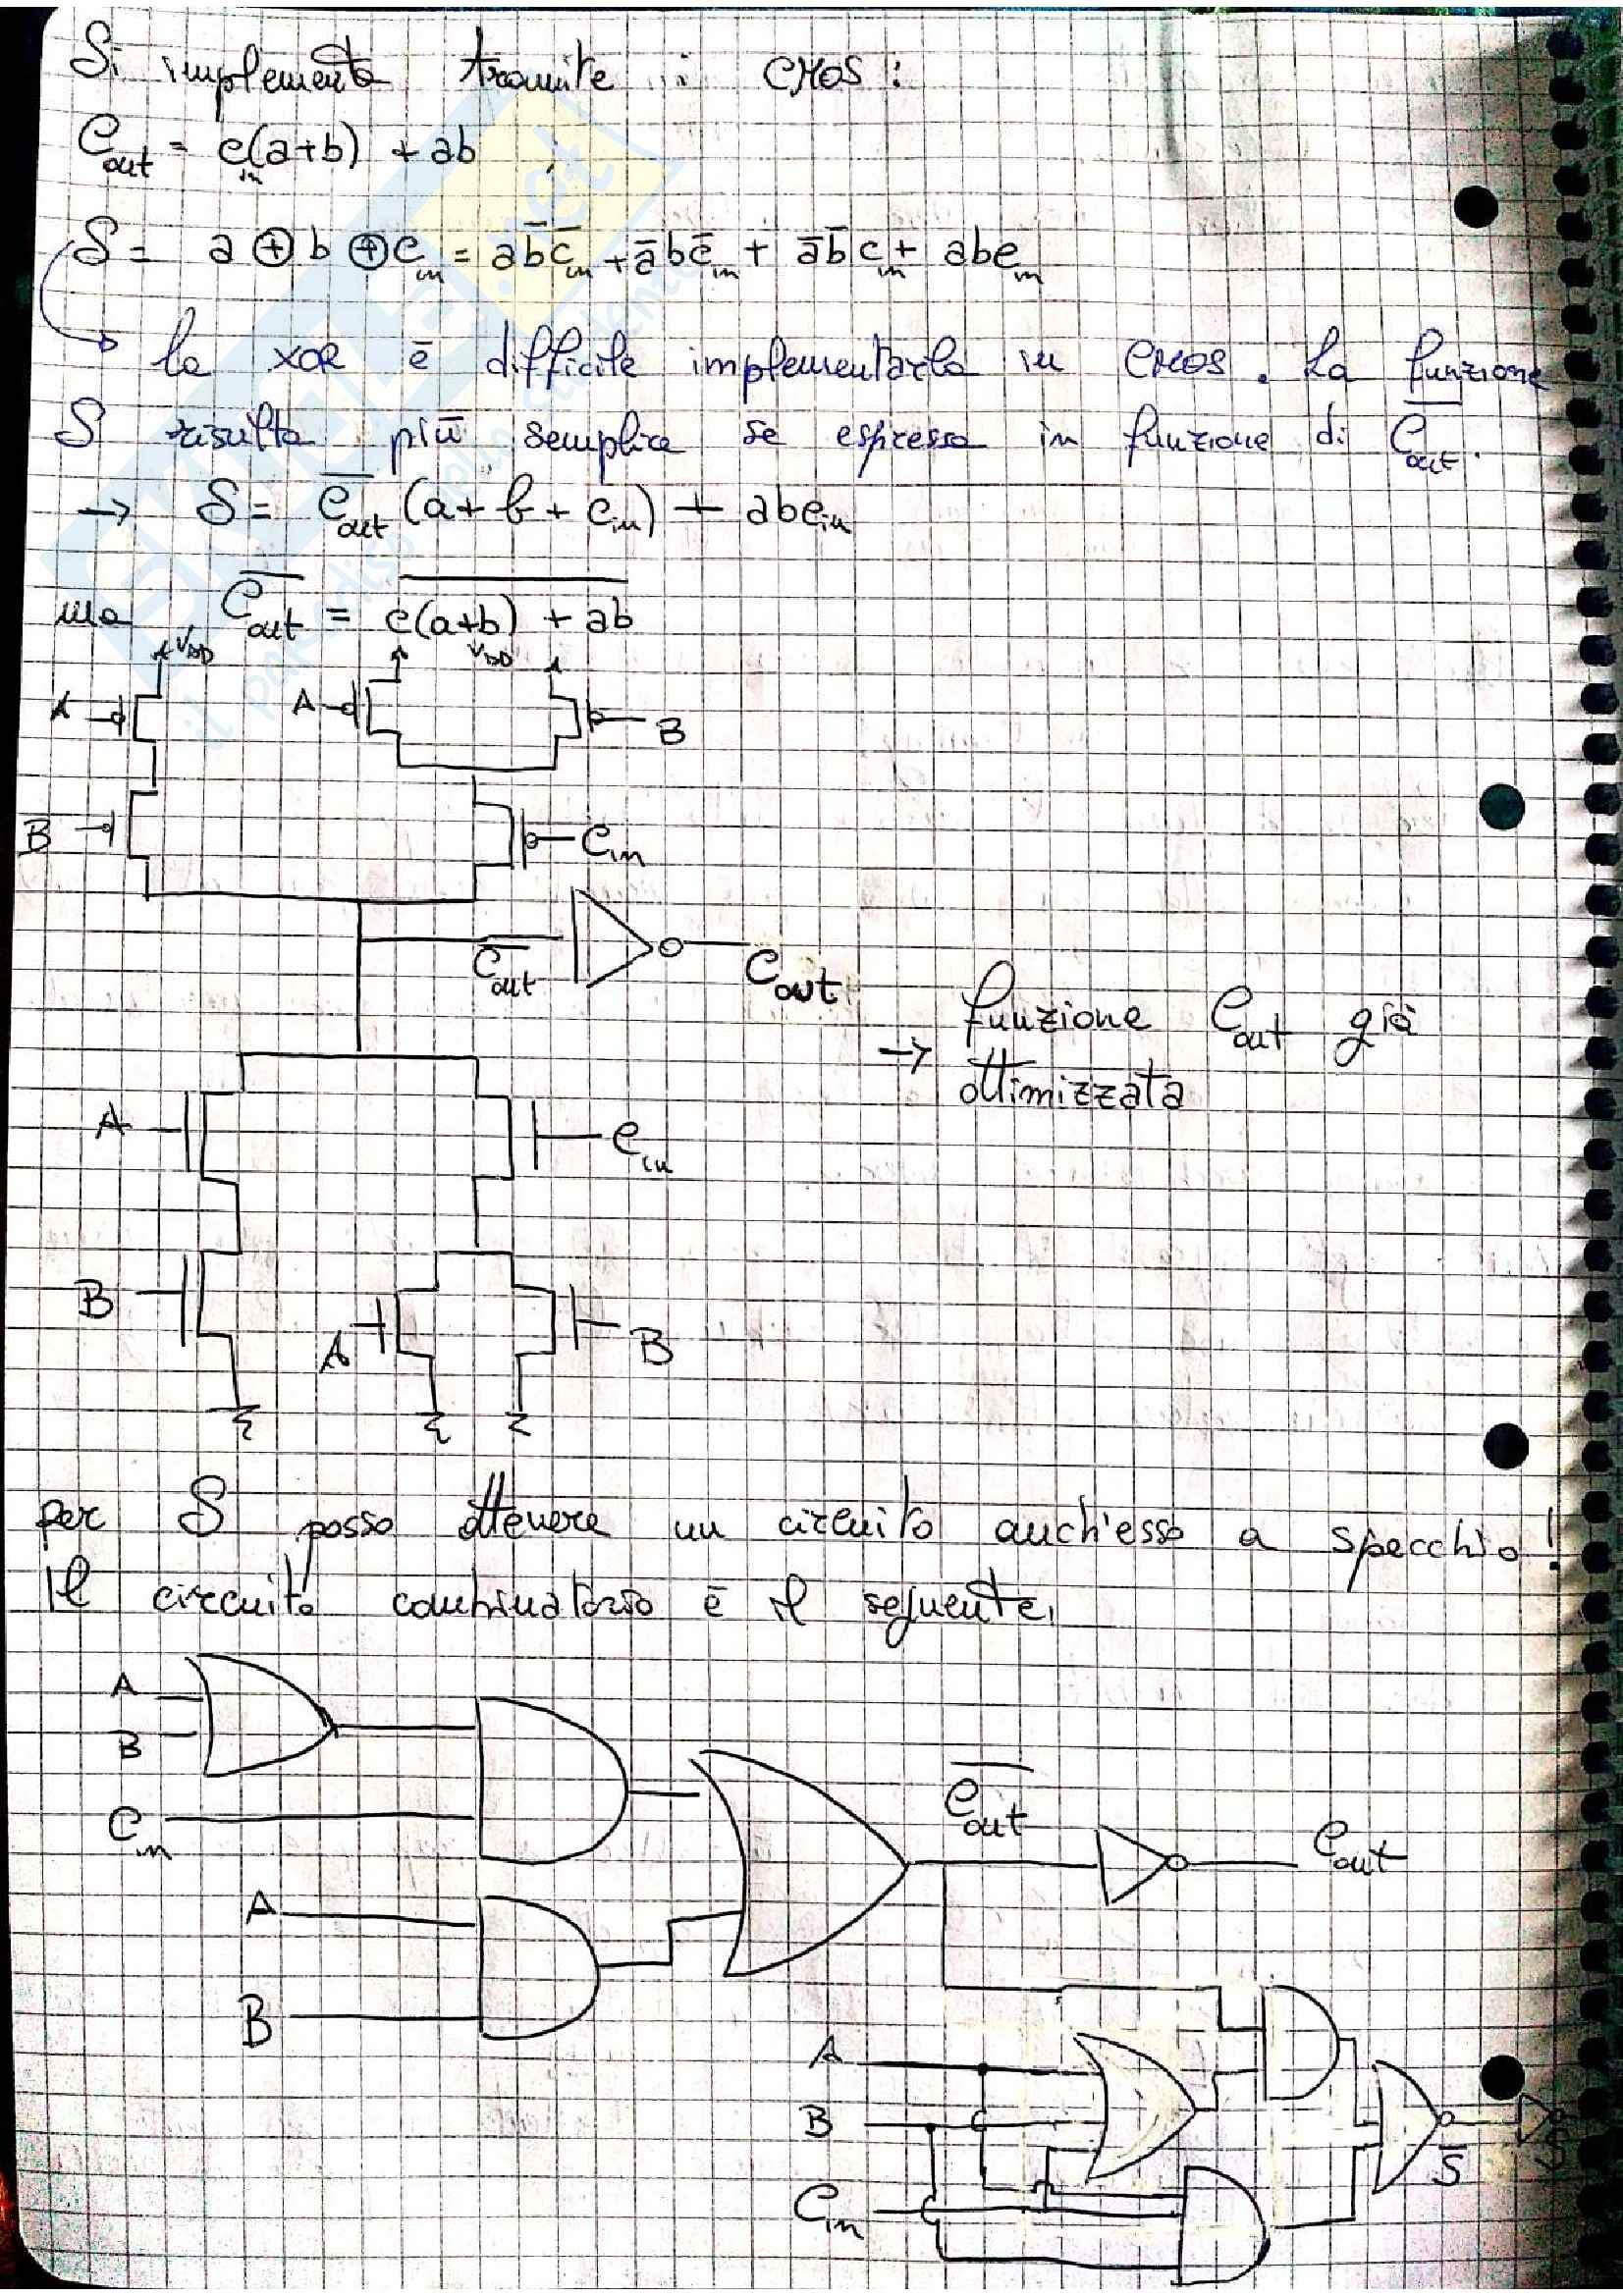 Si implementa tramite i CMOS:
Cout = cin(a+b) + ab ;
S = a ⊕ b ⊕ cin = ab̄c̄in + ābc̄in + āb̄cin + abcin
→ la XOR è difficile implementarla in CMOS. La funzione
S risulta più semplice se espressa in funzione di C̅out.
→ S = C̅out (a + b + cin) + abcin
ma C̅out = \overline{c(a+b) + ab}
VDD VDD
A A B
B Cin
C̅out Cout
→ funzione Cout già
ottimizzata
A Cin
B A B
per S posso ottenere un circuito anch'esso a specchio!
Il circuito combinatorio è il seguente.
A
B
Cin
C̅out Cout
A
B
A
B
S̅
Cin